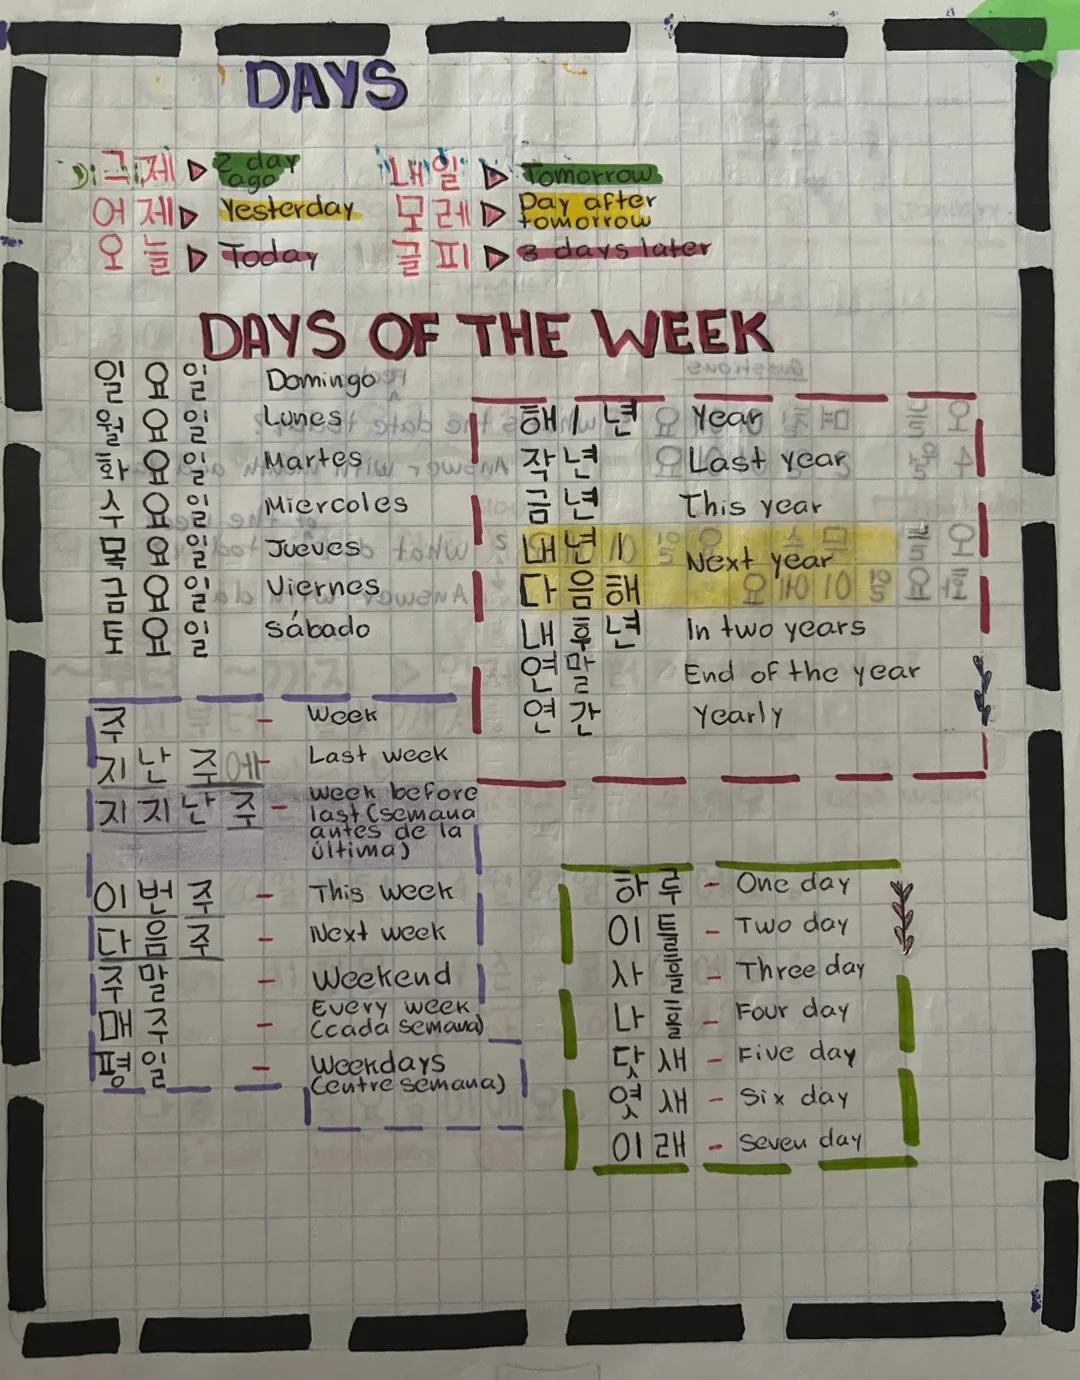 DAYS
그제 ▷ 2 day ago
어제 ▷ Yesterday
오늘 ▷ Today
내일 ▷ Tomorrow
모레 ▷ Day after tomorrow
글피 ▷ 3 days later
DAYS OF THE WEEK
일요일 Domingo
월요일 Lunes
화요일 Martes
수요일 Miercoles
목요일 Jueves
금요일 Viernes
토요일 Sábado
해 / 년 Year
작년 Last year
금년 This year
내년 /
다음해 Next year
내후년 In two years
연말 End of the year
연간 Yearly
주 - Week
지난 주에 - Last week
지지난 주 - week before
last (semana
antes de la
última)
이번 주 - This week
다음 주 - Next week
주말 - Weekend
매주 - Every week
(cada semana)
평일 - Weekdays
(entre semana)
하루 - One day
이틀 - Two day
사흘 - Three day
나흘 - Four day
닷새 - Five day
엿새 - Six day
이래 - Seven day